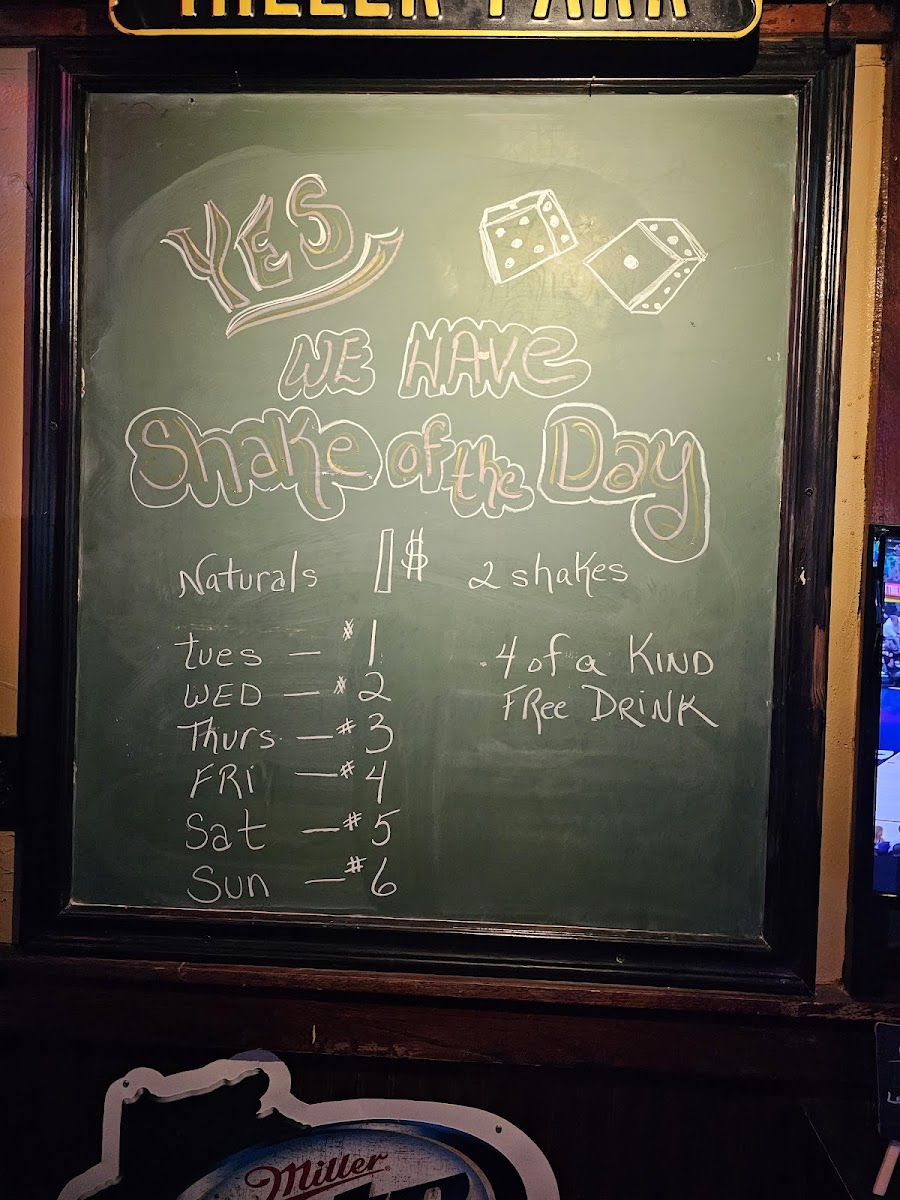 MILLER PARK
YES
WE HAVE
Shake of the Day
Naturals 1$ 2 shakes
tues — #1
WED — #2
Thurs — #3
FRi — #4
Sat — #5
Sun — #6
4 of a KIND
FRee DRiNK
Miller